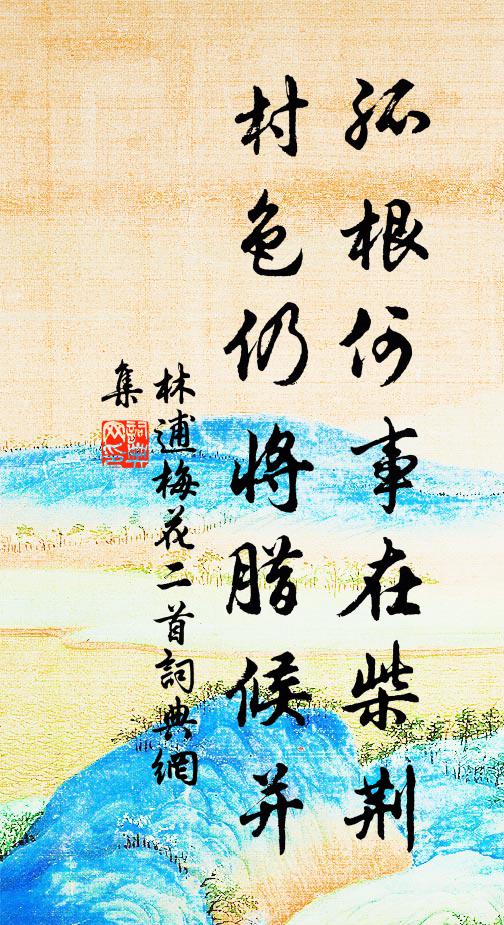 孤根何事在柴荆
村色仍將腊候并
林逋梅花二首詞典網
集